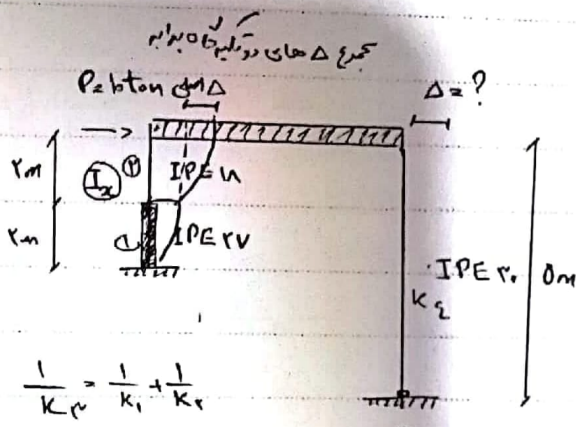 مجموع Δ های دو تکیه گاه برابر
P=6ton اصلی Δ
Δ=?
۲m
I x ②
IPE ۱۸
۲m
①
IPE ۲۷
IPE ۳۰
۵m
K ٤
1/K۳ = 1/K۱ + 1/K۲